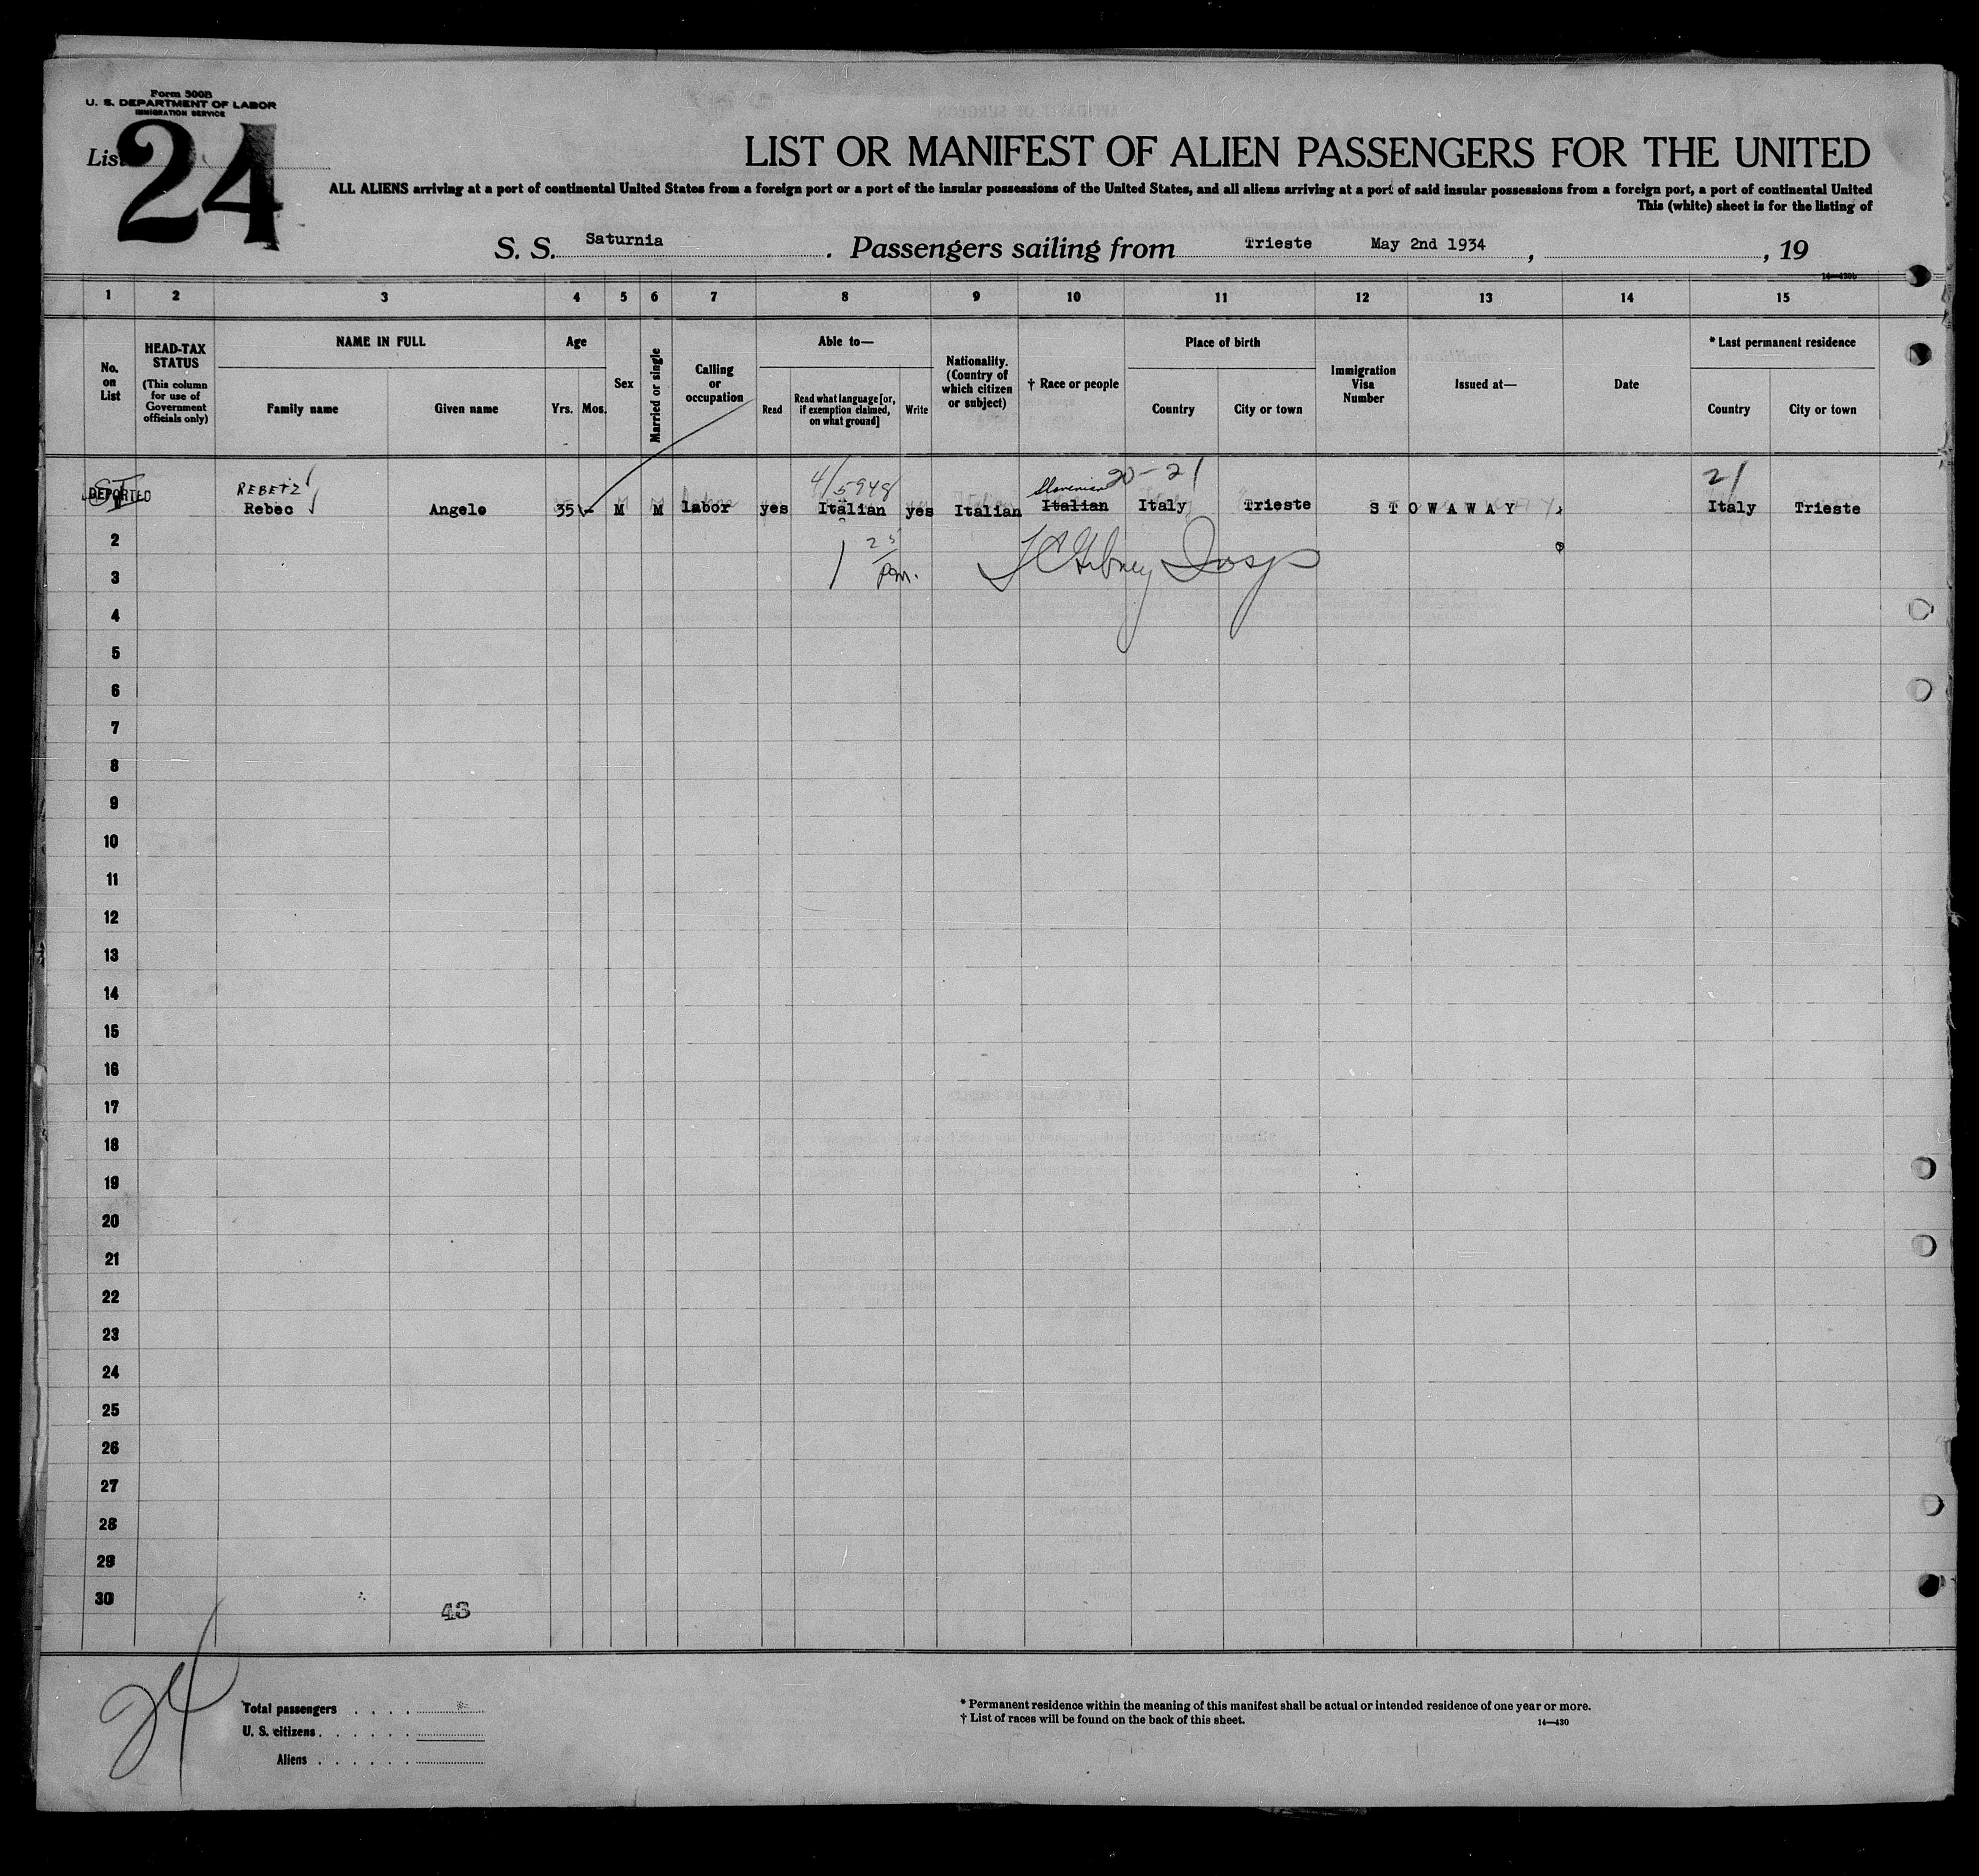 Form 500B
U. S. DEPARTMENT OF LABOR
IMMIGRATION SERVICE
List 24
LIST OR MANIFEST OF ALIEN PASSENGERS FOR THE UNITED
ALL ALIENS arriving at a port of continental United States from a foreign port or a port of the insular possessions of the United States, and all aliens arriving at a port of said insular possessions from a foreign port, a port of continental United
This (white) sheet is for the listing of
S. S. Saturnia. Passengers sailing from Trieste May 2nd 1934, , 19
14—430b
1 2 3 4 5 6 7 8 9 10 11 12 13 14 15
No. on List
HEAD-TAX STATUS
(This column for use of Government officials only)
NAME IN FULL
Family name
Given name
Age
Yrs.
Mos.
Sex
Married or single
Calling or occupation
Able to—
Read
Read what language [or, if exemption claimed, on what ground]
Write
Nationality. (Country of which citizen or subject)
† Race or people
Place of birth
Country
City or town
Immigration Visa Number
Issued at—
Date
* Last permanent residence
Country
City or town
REBETZ 4/5948 Slovenian 20-21 21
DEPORTED Rebec Angelo 35 M M labor yes Italian yes Italian Italian Italy Trieste STOWAWAY Italy Trieste
2
1 25 pm. Insp
3
4
5
6
7
8
9
10
11
12
13
14
15
16
17
18
19
20
21
22
23
24
25
26
27
28
29
30
48
24
Total passengers
U. S. citizens
Aliens
* Permanent residence within the meaning of this manifest shall be actual or intended residence of one year or more.
† List of races will be found on the back of this sheet. 14—430